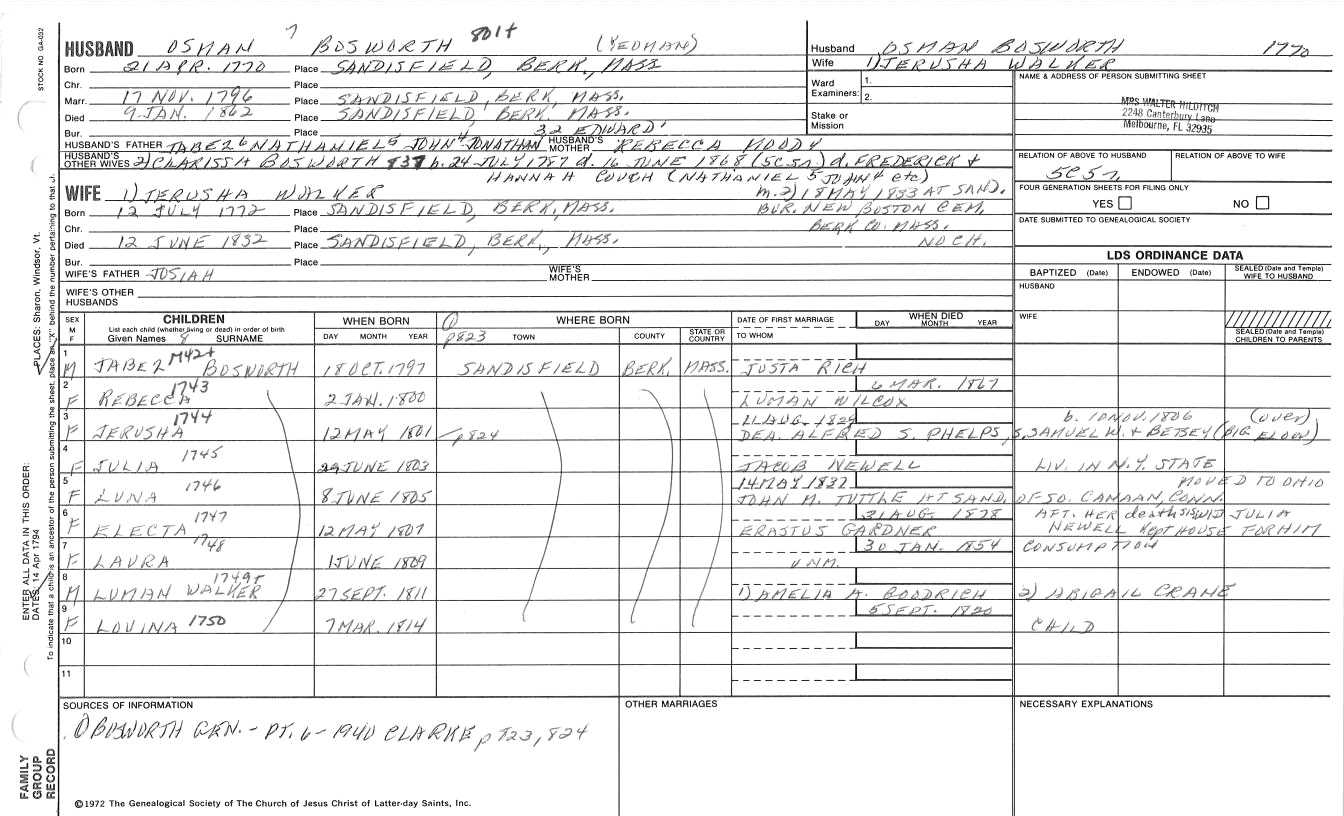 STOCK NO. GA-032
PLACES: Sharon, Windsor, Vt.
ENTER ALL DATA IN THIS ORDER:
DATES: 14 Apr 1794
To indicate that a child is an ancestor of the person submitting the sheet, place an "X" behind the number pertaining to that
FAMILY GROUP RECORD
HUSBAND OSMAN 7 BOSWORTH 801+ (YEOMAN)
Born 21 APR. 1770 Place SANDISFIELD, BERK., MASS
Chr. Place
Marr. 17 NOV. 1796 Place SANDISFIELD, BERK, MASS.
Died 9 JAN. 1862 Place SANDISFIELD, BERK. MASS.
Bur. Place 32 EDWARD1
HUSBAND'S FATHER TABEZ6 NATHANIEL5 JOHN4 JONATHAN HUSBAND'S MOTHER REBECCA MOODY
HUSBAND'S OTHER WIVES 2) CLARISSA BOSWORTH 837 b. 24 JULY 1787 d. 16 JUNE 1868 (5C5n) d. FREDERICK +
HANNAH COUCH (NATHANIEL5 JOHN4 etc)
WIFE 1) JERUSHA WALKER m. 2) 18 MAY 1833 AT SAND.
Born 12 JULY 1772 Place SANDISFIELD, BERK, MASS. BUR. NEW BOSTON CEM.
Chr. Place BERK CO. MASS.
Died 12 JUNE 1832 Place SANDISFIELD, BERK., MASS. NO CH.
Bur. Place
WIFE'S FATHER JOSIAH WIFE'S MOTHER
WIFE'S OTHER HUSBANDS
Husband OSMAN BOSWORTH 1770
Wife 1) JERUSHA WALKER
Ward Examiners: 1.
2.
Stake or Mission
NAME & ADDRESS OF PERSON SUBMITTING SHEET
MRS WALTER HILDITCH
2248 Canterbury Lane
Melbourne, FL 32935
RELATION OF ABOVE TO HUSBAND RELATION OF ABOVE TO WIFE
5C5n
FOUR GENERATION SHEETS FOR FILING ONLY
YES NO
DATE SUBMITTED TO GENEALOGICAL SOCIETY
LDS ORDINANCE DATA
BAPTIZED (Date) ENDOWED (Date) SEALED (Date and Temple) WIFE TO HUSBAND
HUSBAND
WIFE
SEALED (Date and Temple) CHILDREN TO PARENTS
SEX M F CHILDREN WHEN BORN 1 WHERE BORN DATE OF FIRST MARRIAGE WHEN DIED
List each child (whether living or dead) in order of birth
Given Names 8 SURNAME DAY MONTH YEAR p823 TOWN COUNTY STATE OR COUNTRY TO WHOM DAY MONTH YEAR
1 M JABEZ 1742+ BOSWORTH 18 OCT. 1797 SANDISFIELD BERK. MASS. JUSTA RICH
2 F REBECCA 1743 2 JAN. 1800 6 MAR. 1867 LUMAN WILCOX
3 F JERUSHA 1744 12 MAY 1801 p824 11 AUG. 1829 DEA. ALFRED S. PHELPS, b. 10 NOV. 1806 (over) S. SAMUEL W. + BETSEY (BIGELOW)
4 F JULIA 1745 29 JUNE 1803 JACOB NEWELL LIV. IN N.Y. STATE
5 F LUNA 1746 8 JUNE 1805 14 MAY 1832 JOHN M. TUTTLE AT SAND, OF SO. CANAAN, CONN. MOVED TO OHIO
6 F ELECTA 1747 12 MAY 1807 31 AUG. 1878 ERASTUS GARDNER AFT. HER death sis wid JULIA NEWELL Kept HOUSE FOR HIM
7 F LAURA 1748 1 JUNE 1809 30 JAN. 1854 UNM. CONSUMPTION
8 M LUMAN WALKER 1749+ 27 SEPT. 1811 1) AMELIA A. GOODRICH 2) ABIGAIL CRANE
9 F LOVINA 1750 7 MAR. 1814 5 SEPT. 1820 CHILD
10
11
SOURCES OF INFORMATION OTHER MARRIAGES NECESSARY EXPLANATIONS
1 BOSWORTH GEN. - PT. 6 - 1940 CLARKE p 823, 824
©1972 The Genealogical Society of The Church of Jesus Christ of Latter-day Saints, Inc.